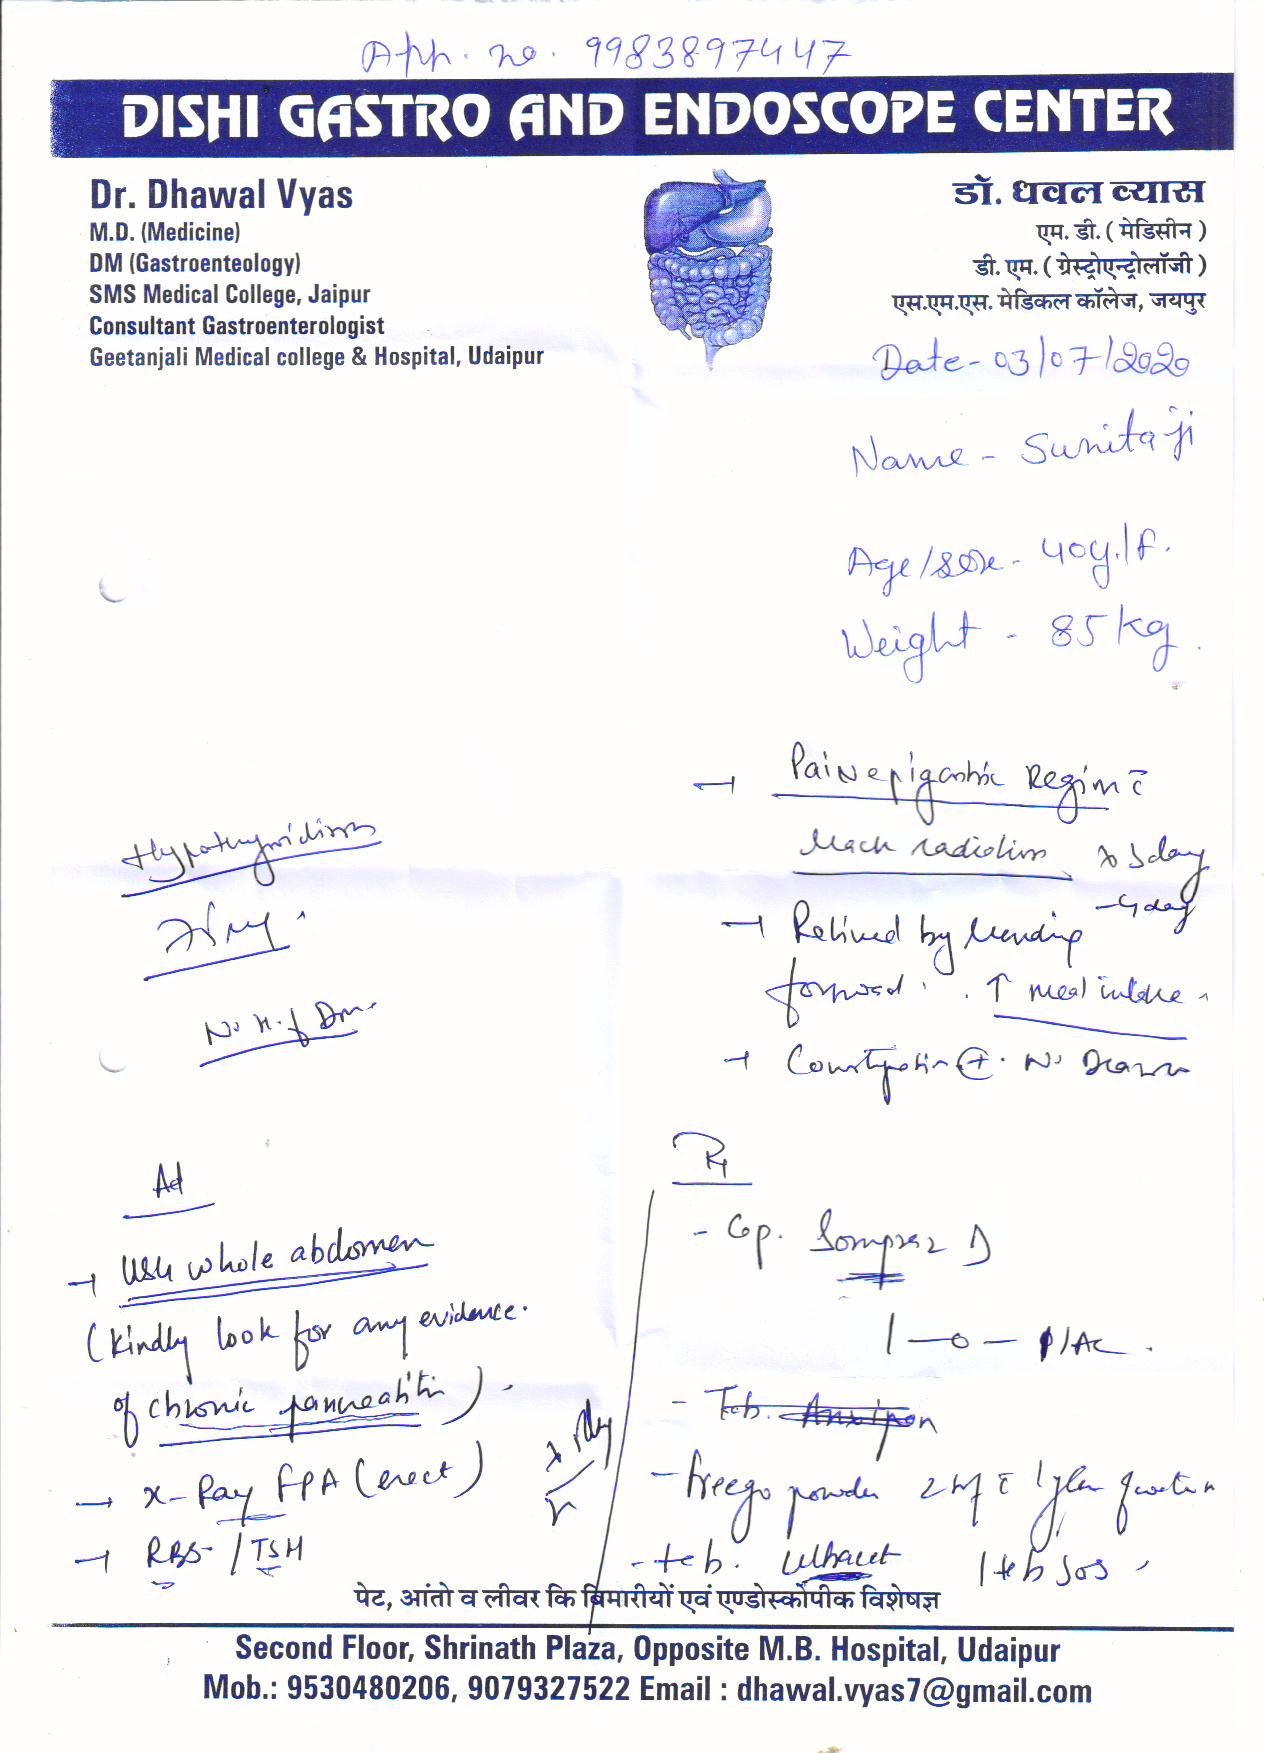 App. no. 9983897447
DISHI GASTRO AND ENDOSCOPE CENTER
Dr. Dhawal Vyas
M.D. (Medicine)
DM (Gastroenteology)
SMS Medical College, Jaipur
Consultant Gastroenterologist
Geetanjali Medical college & Hospital, Udaipur
डॉ. धवल व्यास
एम. डी. ( मेडिसीन )
डी. एम. ( ग्रेस्ट्रोएन्ट्रोलॉजी )
एस.एम.एस. मेडिकल कॉलेज, जयपुर
Date - 03/07/2020
Name - Sunita ji
Age/sex - 40y./F.
Weight - 85 kg.
→ Pain epigastric Region c̄
radiation x 3 day
- 4 day
→ Relived by bending
forward. ↑ meal intake
→ Constipation ⊕. No
Hypothyroidism
No H/o DM
Ad
→ USG whole abdomen
(Kindly look for any evidence
of chronic pancreatitis).
→ X-Ray FPA (erect)
→ RBS / TSH
Rx
- Cap. Sompraz D
1 - 0 - 1/AC.
- Tab.
- Freego powder 2 c̄ 1 glass
- tab. 1 tab SOS
पेट, आंतो व लीवर कि बिमारीयों एवं एण्डोस्कोपीक विशेषज्ञ
Second Floor, Shrinath Plaza, Opposite M.B. Hospital, Udaipur
Mob.: 9530480206, 9079327522 Email : dhawal.vyas7@gmail.com